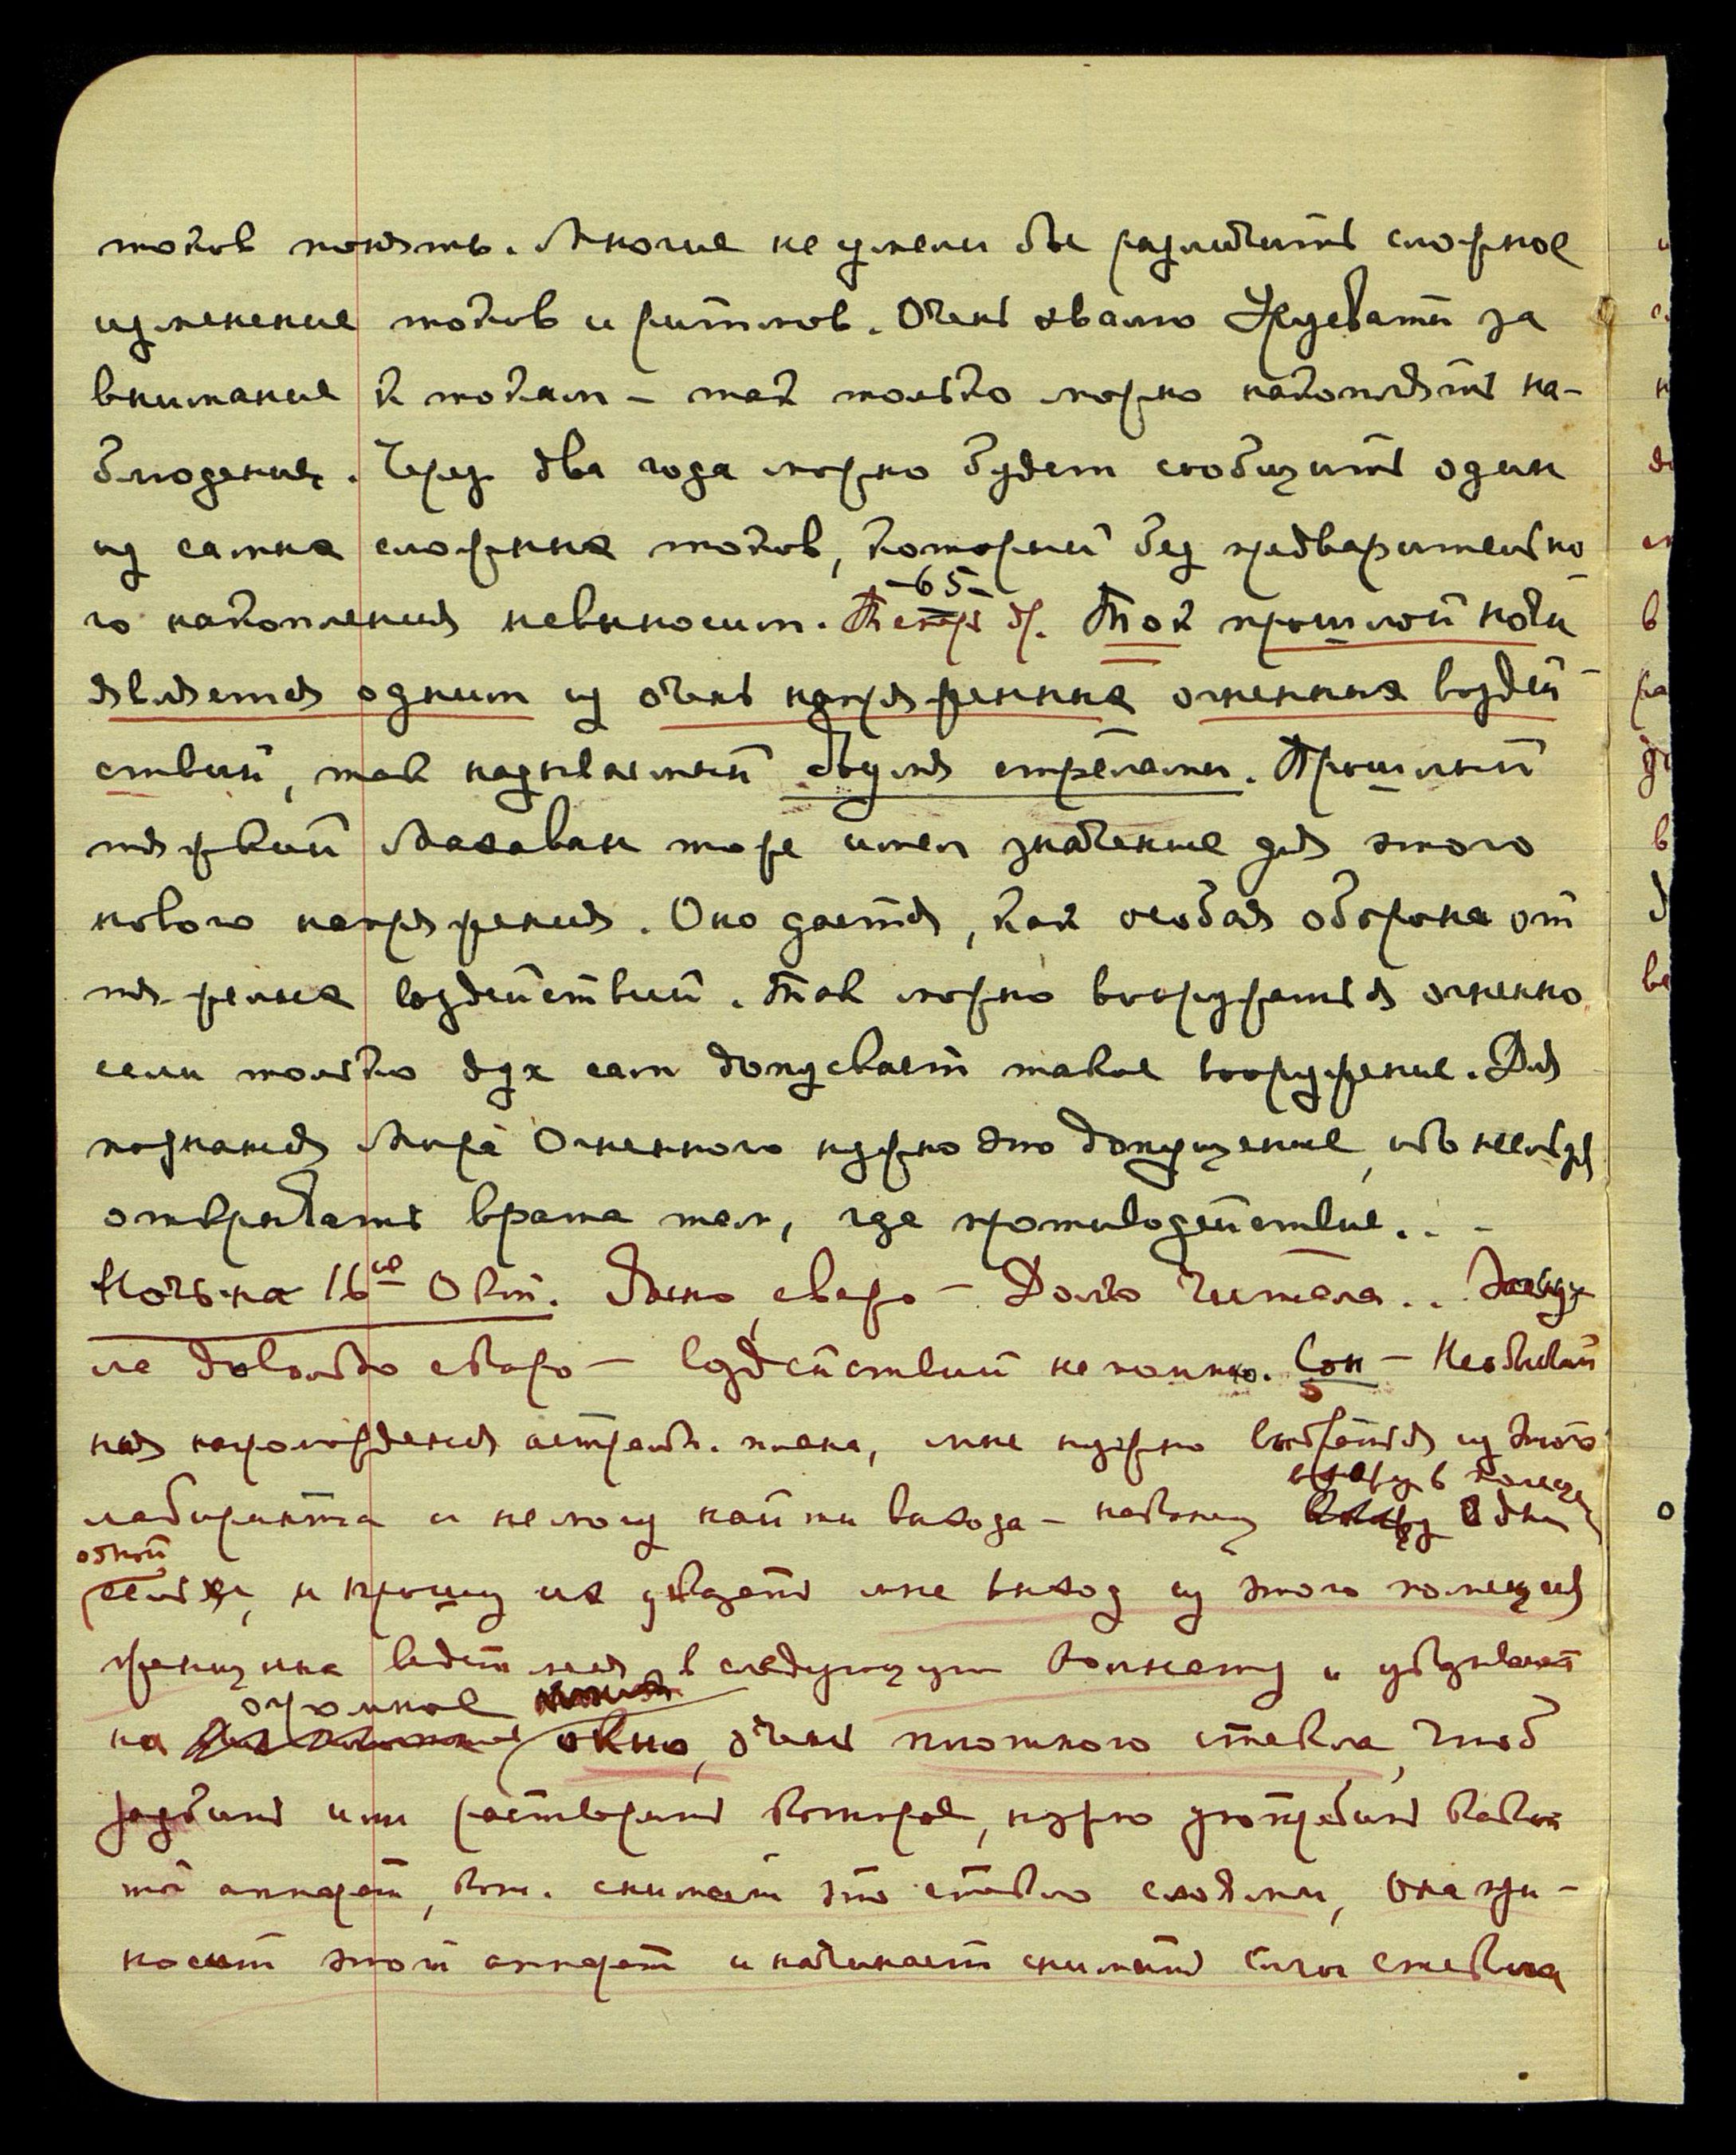 токов понять. Многие не умели бы различить сложное
изменение токов и ритмов. Очень хвалю Урусвати за
внимание к токам – так только можно накоплять на-
блюдения. Через два года можно будет сообщить один
из самых сложных токов, который без предваритель­но
-65-
го накопления невыносим. Теперь др. Ток прошлой ночи
является одним из очень напряженных огненных воздей
ствий, так называемый двумя стрелами. Прошлый
тяжкий Махаван тоже имел значение для этого
нового напряжения. Оно дается, как особая оборона от
тяжелых воздействий. Так можно вооружаться огненно
если только дух сам допускает такое вооружение. Для
познания Мира Огненного нужно это допущение, ибо нельзя
открывать врата там, где противодействие. . –
Ночь на 16ое Окт. Душно, скверно – Долго читала . .
ла довольно скоро – воздействий не помню. Сон –
ная нагромождения астральн. плана, мне нужно выбраться из этого
лабиринта и не могу найти выхода – наконец
вхожу в помеще
одной
семьи, и прошу их указать мне выход из этого помещения
женщина ведет меня в следующую комнату и указывает
огромное
на окно, очень плотного стекла, чтоб
разбить или растворить которое, нужно употребить какой
то аппарат, кот. снимает это стекло слоями, Она при-
носит этот аппарат и начинает снимать слои стекла